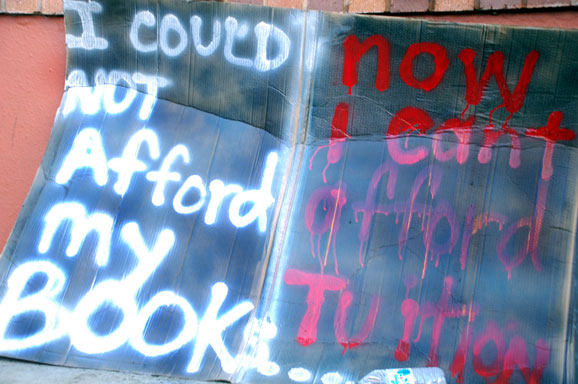 I COULD
NOT
Afford
my
BOOKS...
now
I can't
afford
TUITION